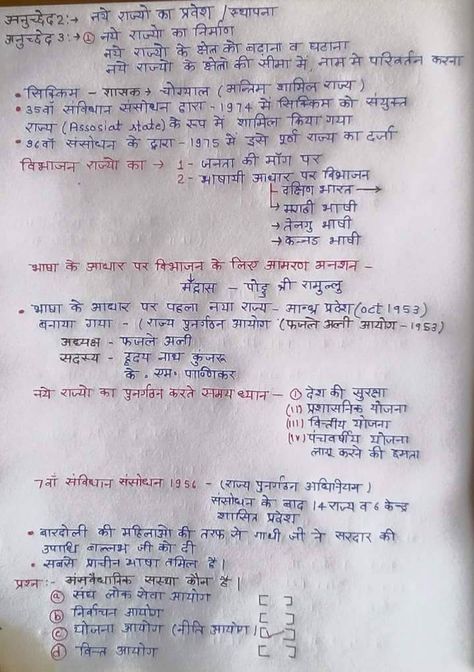 अनुच्छेद 2:→ नये राज्यो का प्रवेश / स्थापना
अनुच्छेद 3:→ ① नये राज्यो का निर्माण
नये राज्यो के क्षेत्र को बढाना व घटाना
नये राज्यो के क्षेत्रो की सीमा में, नाम में परिवर्तन करना
• सिक्किम - शासक → चोग्याल (अन्तिम शामिल राज्य)
• 35वाँ संविधान संसोधन द्वारा - 1974 में सिक्किम को संयुक्त
राज्य (Assosiat state) के रूप में शामिल किया गया
• 36वां संसोधन के द्वारा - 1975 में इसे पूर्ण राज्य का दर्जा
विभाजन राज्यो का → 1- जनता की माँग पर
2- भाषायी आधार पर विभाजन
दक्षिण भारत →
→ मराठी भाषी
→ तेलगु भाषी
→ कन्नड भाषी
भाषा के आधार पर विभाजन के लिए आमरण अनशन -
मद्रास - पोट्टु श्री रामुल्लु
• भाषा के आधार पर पहला नया राज्य - आन्ध्र प्रदेश (oct 1953)
बनाया गया - (राज्य पुनर्गठन आयोग (फजले अली आयोग - 1953)
अध्यक्ष - फजले अली
सदस्य - हृदय नाथ कुंजरू
के. एम. पाणिकर
नये राज्यो का पुनर्गठन करते समय ध्यान - ① देश की सुरक्षा
(ii) प्रशासनिक योजना
(iii) वित्तीय योजना
(iv) पंचवर्षीय योजना
लागू करने की क्षमता
7वाँ संविधान संसोधन 1956 - (राज्य पुनर्गठन अधिनियम)
संसोधन के बाद 14 राज्य व 6 केन्द्र
शासित प्रदेश
• बारदोली की महिलाओ की तरफ से गाधी जी ने सरदार की
उपाधि बल्लभ जी को दी
• सबसे प्राचीन भाषा तमिल है।
प्रश्न:- संवैधानिक संस्था कौन है।
ⓐ संघ लोक सेवा आयोग [ ]
ⓑ निर्वाचन आयोग [ ]
ⓒ योजना आयोग (नीति आयोग) [ ]
ⓓ वित्त आयोग [ ]